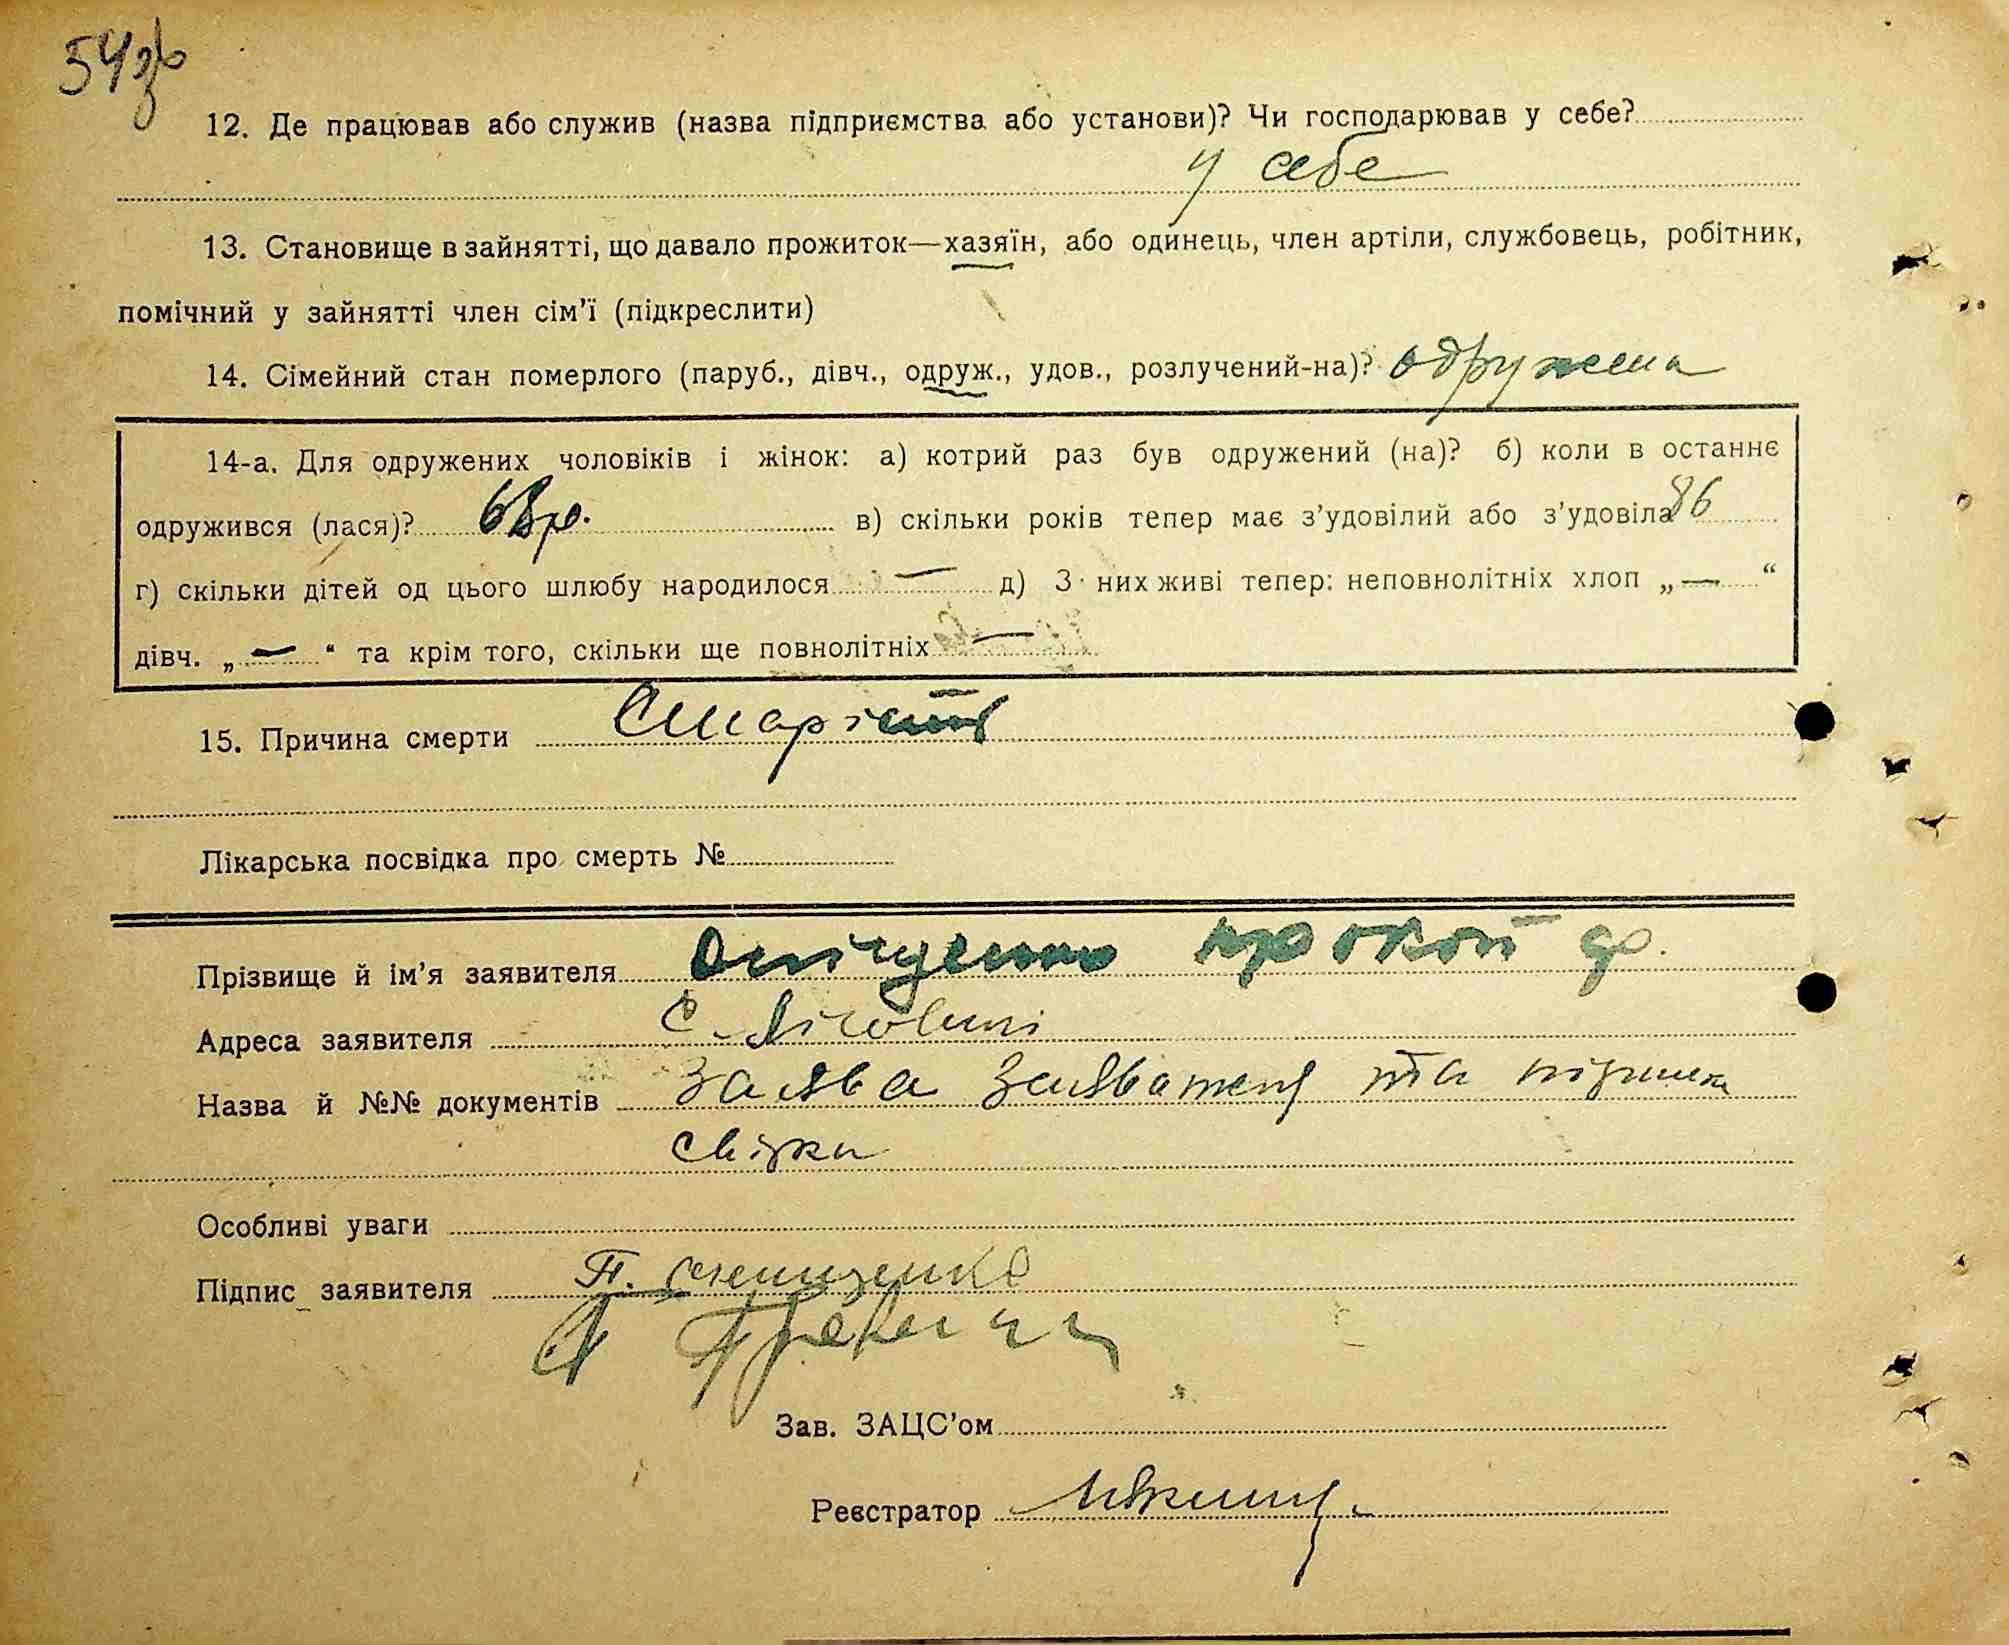 54зв
12. Де працював або служив (назва підприємства або установи)? Чи господарював у себе?
у себе
13. Становище в зайнятті, що давало прожиток—хазяїн, або одинець, член артіли, службовець, робітник,
помічний у зайнятті член сім'ї (підкреслити)
14. Сімейний стан померлого (паруб., дівч., одруж., удов., розлучений-на)? одружена
14-а. Для одружених чоловіків і жінок: а) котрий раз був одружений (на)? б) коли в останнє
одружився (лася)? 68 р. в) скільки років тепер має з'удовілий або з'удовіла 86
г) скільки дітей од цього шлюбу народилося — д) З них живі тепер: неповнолітніх хлоп „—“
дівч. „—“ та крім того, скільки ще повнолітніх —
15. Причина смерти Старість
Лікарська посвідка про смерть №
Прізвище й ім'я заявителя Прокоп
Адреса заявителя с.
Назва й №№ документів Заява Заявителя та
свідки
Особливі уваги
Підпис заявителя П.
Зав. ЗАЦС'ом
Реєстратор